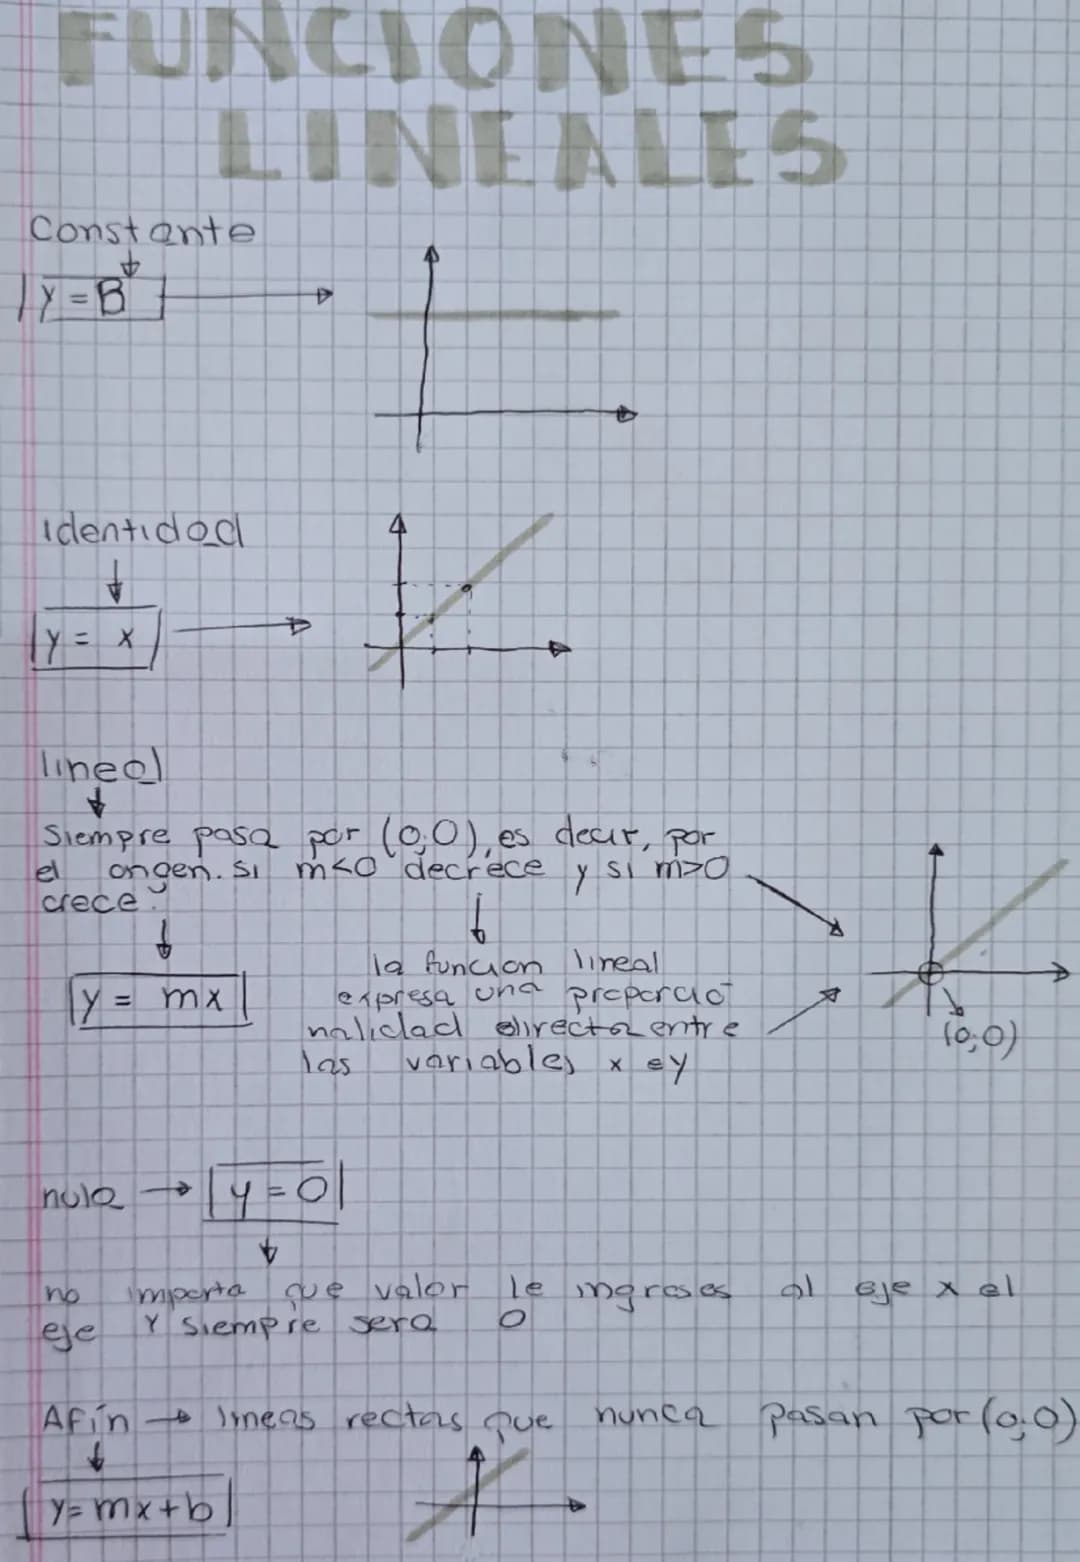 FUNCIONES
LINEALES
Constante
y = B
identidad
y = x
lineal
Siempre pasa por (0;0), es decir, por
el origen. Si m<0 decrece y si m>0
crece.
y = mx
la funcion lineal
expresa una proporcio
nalidad directa entre
las variables x e y
(0;0)
nula → y = 0
no importa que valor le ingreses al eje x el
eje Y siempre sera 0
Afín → líneas rectas que nunca pasan por (0;0)
y = mx + b